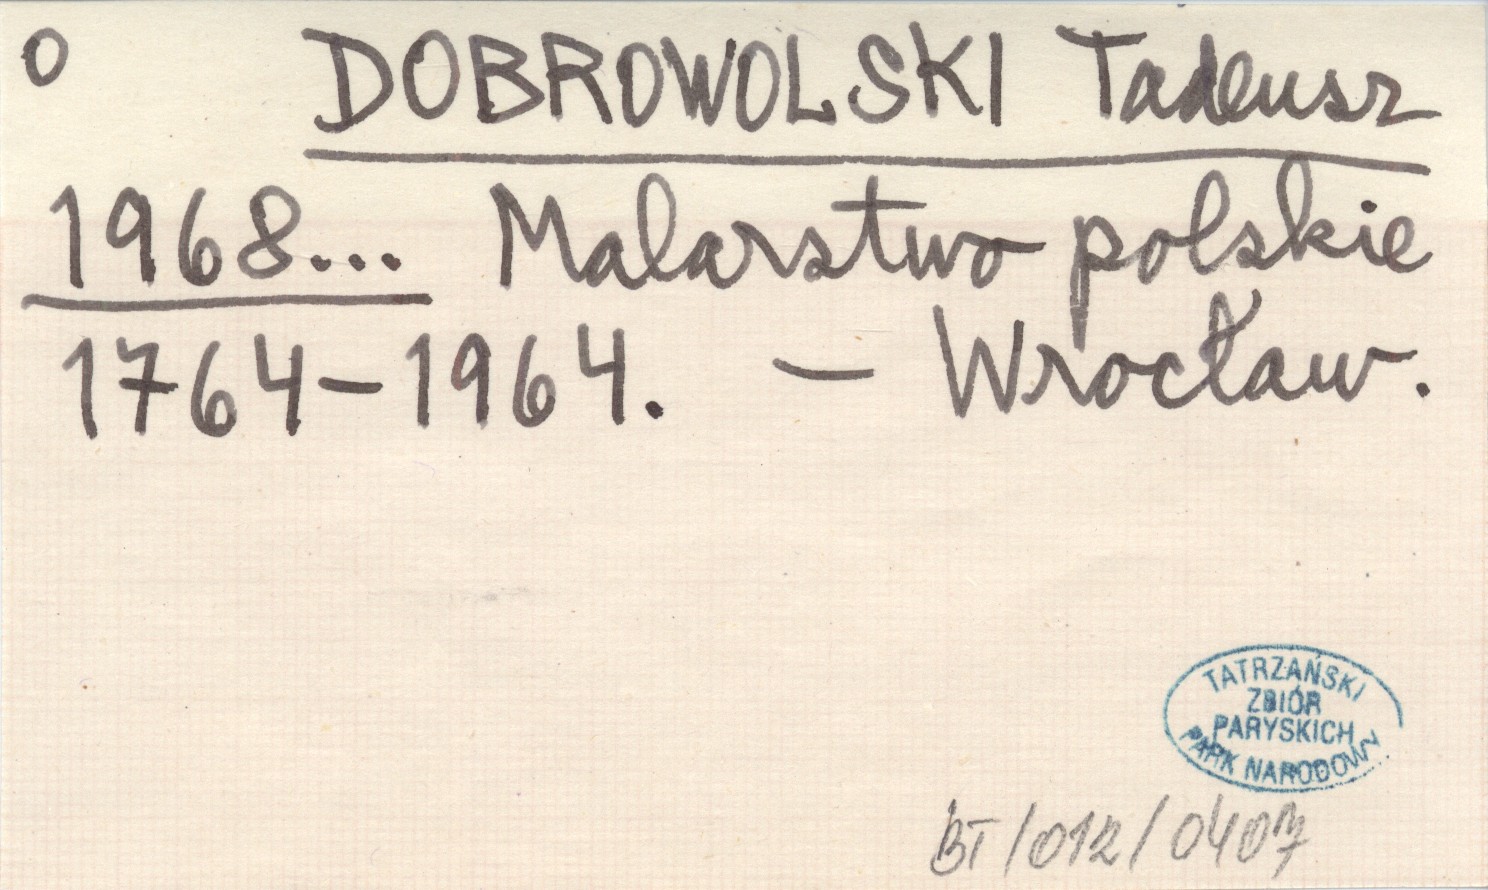 O DOBROWOLSKI Tadeusz
1968... Malarstwo polskie
1764-1964. — Wrocław.
TATRZAŃSKI
ZBIÓR
PARYSKICH
PARK NARODOWY
BT/012/0407